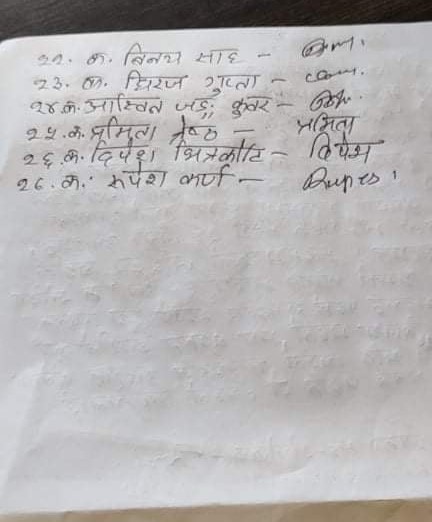 २२. क. विनय साह -
२३. क. धिरज गुप्ता -
२४ क. आस्वित जङ्ग कुवर -
२५. क. प्रमिता श्रेष्ठ - प्रमिता
२६. क. दिपेश भित्रकोटि - दिपेश
२७. क. रुपेश कर्ण - Rupes